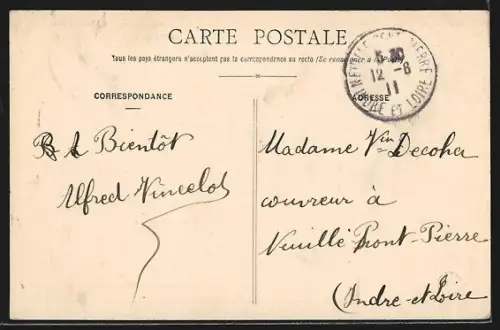 CARTE POSTALE
Tous les pays étrangers n'acceptent pas la correspondance au recto (Se renseigner à la Poste)
CORRESPONDANCE
ADRESSE
NEUILLÉ PONT PIERRE
12 - 6
11
INDRE ET LOIRE
A Bientôt
Alfred Vincelot
Madame Vin Decoha
couvreur à
Neuillé Pont-Pierre
(Indre-et-Loire